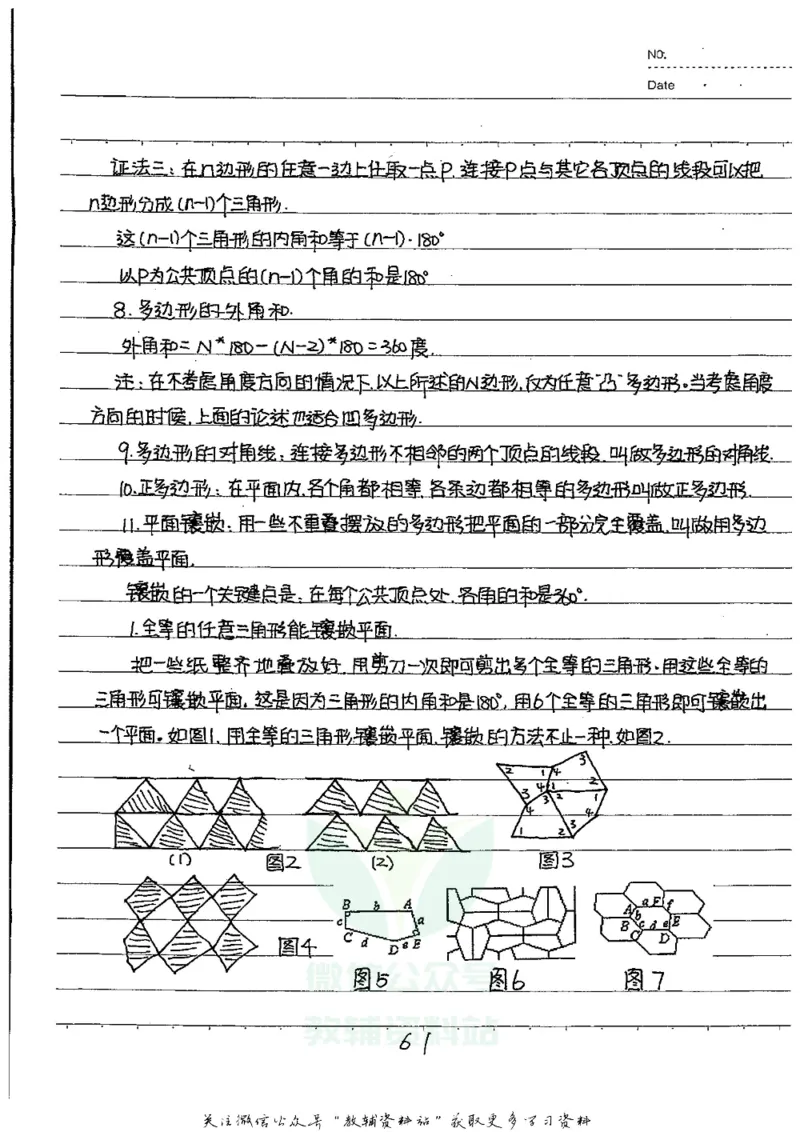 NO.
Date
证法三:在n边形的任意一边上任取一点P,连接P点与其它各顶点的线段可以把
n边形分成(n-1)个三角形.
这(n-1)个三角形的内角和等于(n-1)·180°
以P为公共顶点的(n-1)个角的和是180°
8.多边形的外角和.
外角和=N*180-(N-2)*180=360度.
注:在不考虑角度方向的情况下,以上所述的N边形,仅为任意"凸"多边形。当考虑角度
方向的时候,上面的论述也适合凹多边形.
9.多边形的对角线:连接多边形不相邻的两个顶点的线段,叫做多边形的对角线.
10.正多边形:在平面内,各个角都相等,各条边都相等的多边形叫做正多边形.
11.平面镶嵌:用一些不重叠摆放的多边形把平面的一部分完全覆盖,叫做用多边
形覆盖平面.
镶嵌的一个关键点是:在每个公共顶点处,各角的和是360°.
1.全等的任意三角形能镶嵌平面.
把一些纸整齐地叠放好,用剪刀一次即可剪出多个全等的三角形.用这些全等的
三角形可镶嵌平面。这是因为三角形的内角和是180°,用6个全等的三角形即可镶嵌出
一个平面。如图1.用全等的三角形镶嵌平面,镶嵌的方法不止一种,如图2.
2 1 4 3 2
3 4 1 3 2 1
4 4
1 2 3
(1) 图2 (2) 图3
B b A
c a
C d D e E
A a F f
b
B c d e E
C D
图4
图5 图6 图7
微信公众号
教辅资料站
61
关注微信公众号"教辅资料站"获取更多学习资料